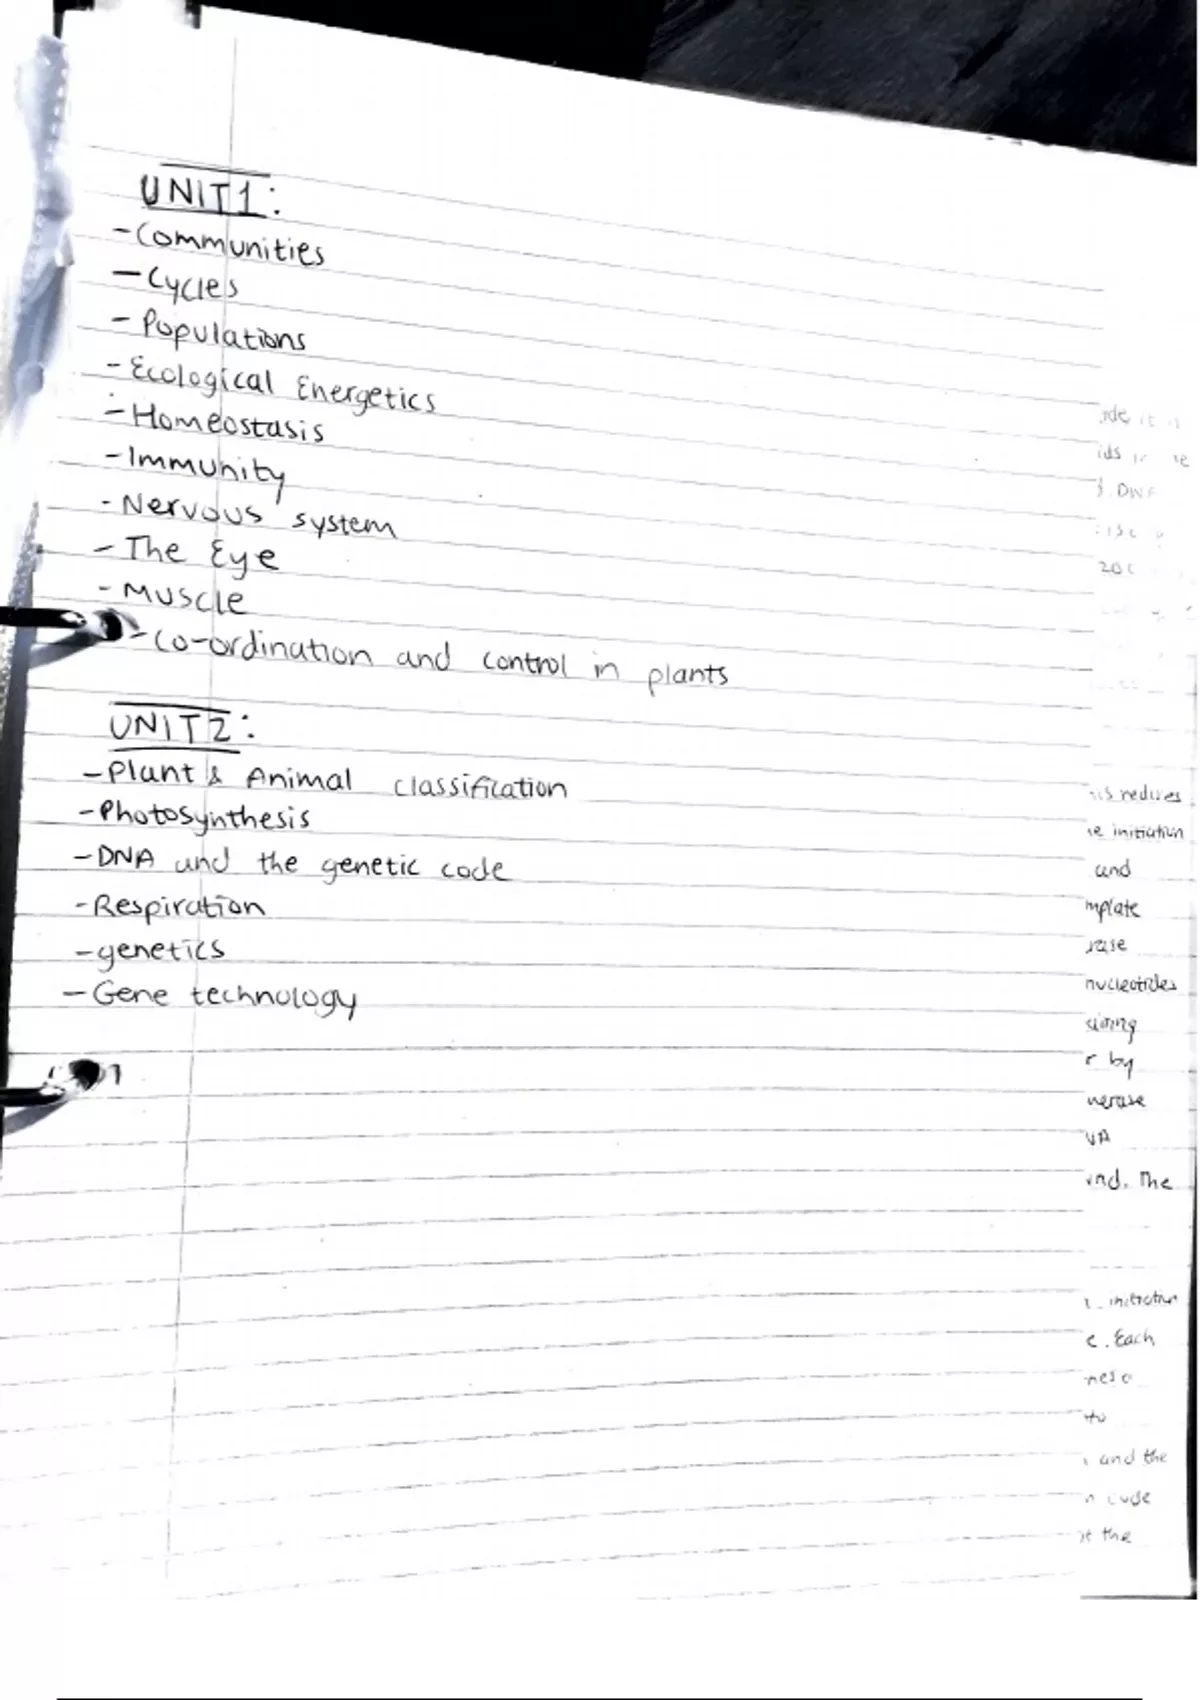 UNIT1:
-Communities
-Cycles
-Populations
-Ecological Energetics
-Homeostasis
-Immunity
-Nervous system
-The Eye
-Muscle
-Co-ordination and control in plants
UNIT2:
-Plant & Animal classification
-Photosynthesis
-DNA and the genetic code
-Respiration
-genetics
-Gene technology
initiation
and
nucleotides
by
. The
. Each
and the
the